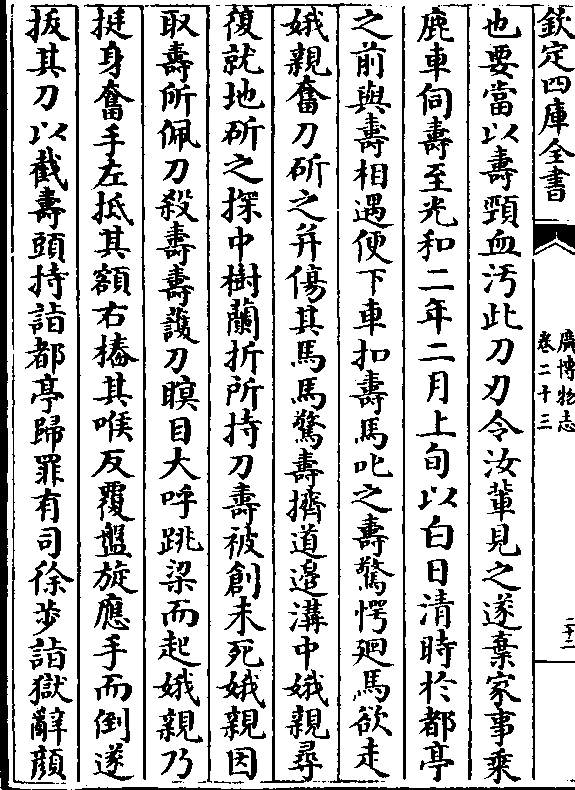 欽定四庫全書
廣博物志
卷二十三
二十二
也要當以壽頸血汚此刀刃令汝輩見之遂棄家事乗
鹿車伺壽至光和二年二月上旬以白日清時於都亭
之前與壽相遇便下車扣壽馬叱之壽驚愕廻馬欲走
娥親奮刀斫之并傷其馬馬驚壽擠道邉溝中娥親尋
復就地斫之探中樹蘭折所持刀壽被創未死娥親因
取壽所佩刀殺壽壽護刀瞋目大呼跳梁而起娥親乃
挺身奮手左抵其額右摏其喉反覆盤旋應手而倒遂
拔其刀以截壽頭持詣都亭歸罪有司徐步詣獄辭顔